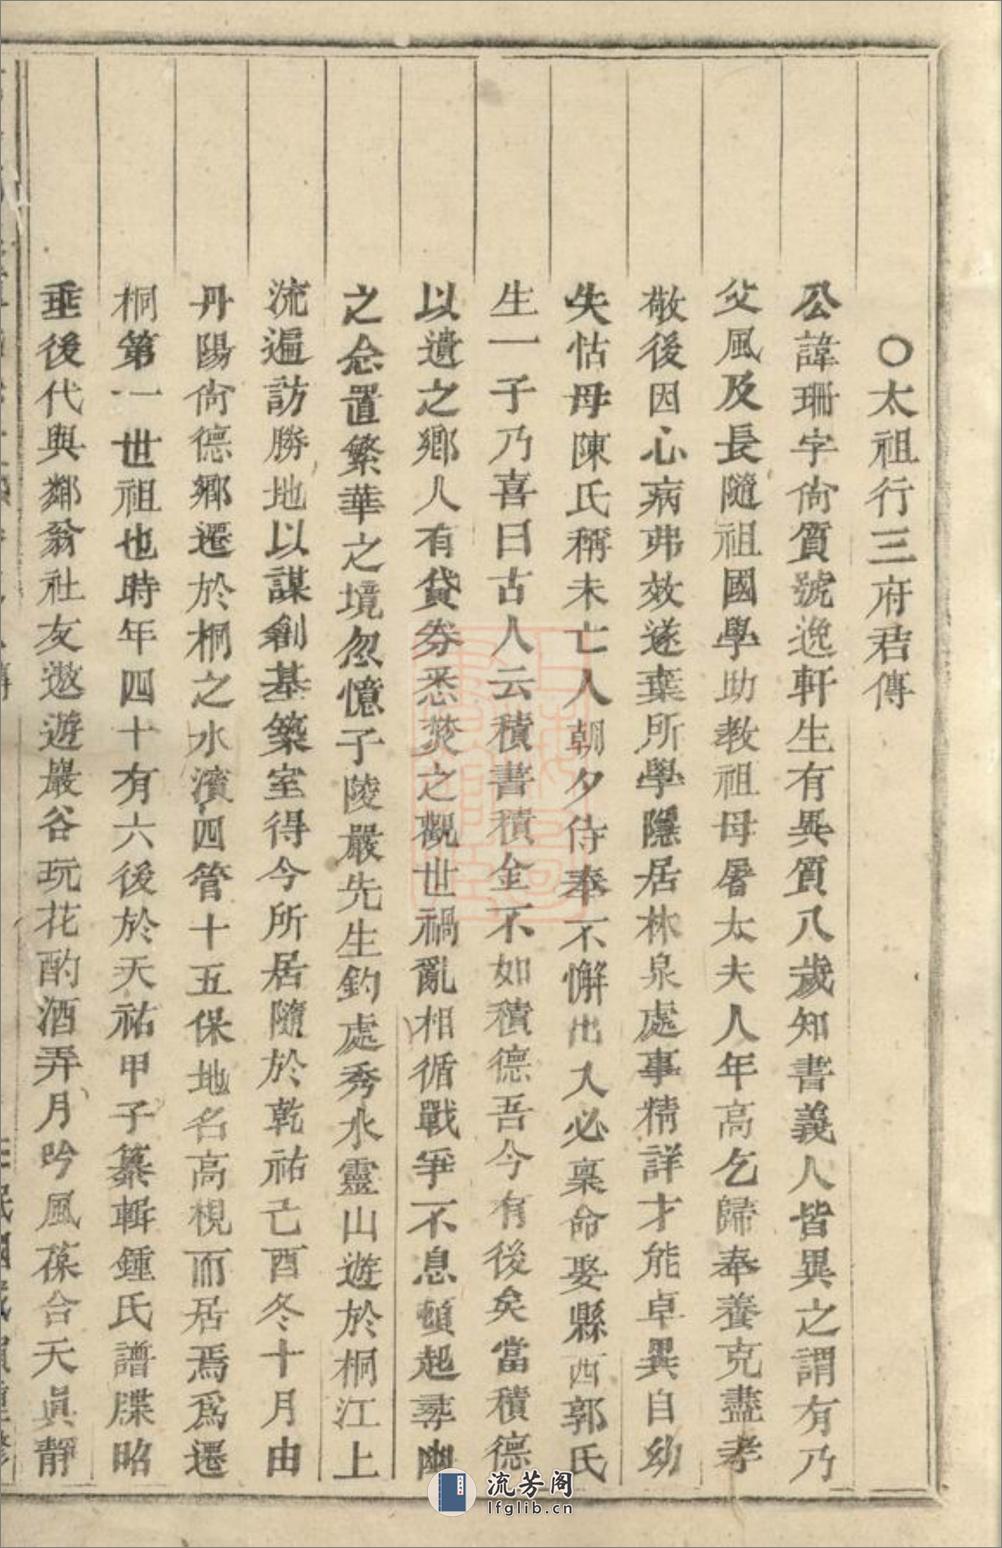 ○太祖行三府君傳
公諱珊字尙質號逸軒生有異質八歲知書義人皆異之謂有乃
父風及長隨祖國學助教祖母屠太夫人年高乞歸奉養克盡孝
敬後因心病弗效遂棄所學隱居林泉處事精詳才能卓異自幼
失怙母陳氏稱未亡人朝夕侍奉不懈出入必稟命娶縣西郭氏
生一子乃喜曰古人云積書積金不如積德吾今有後矣當積德
以遺之鄉人有貸券悉焚之觀世禍亂相循戰爭不息頓起尋幽
之念置繁華之境忽憶子陵嚴先生釣處秀水靈山遊於桐江上
流遍訪勝地以謀創基築室得今所居隨於乾祐己酉冬十月由
丹陽尙德鄉遷於桐之水濱四管十五保地名高梘而居焉爲遷
桐第一世祖也時年四十有六後於天祐甲子纂輯鍾氏譜牒昭
垂後代與鄰翁社友遨遊巖谷玩花酌酒弄月吟風葆合天眞靜
流芳阁
lfglib.cn